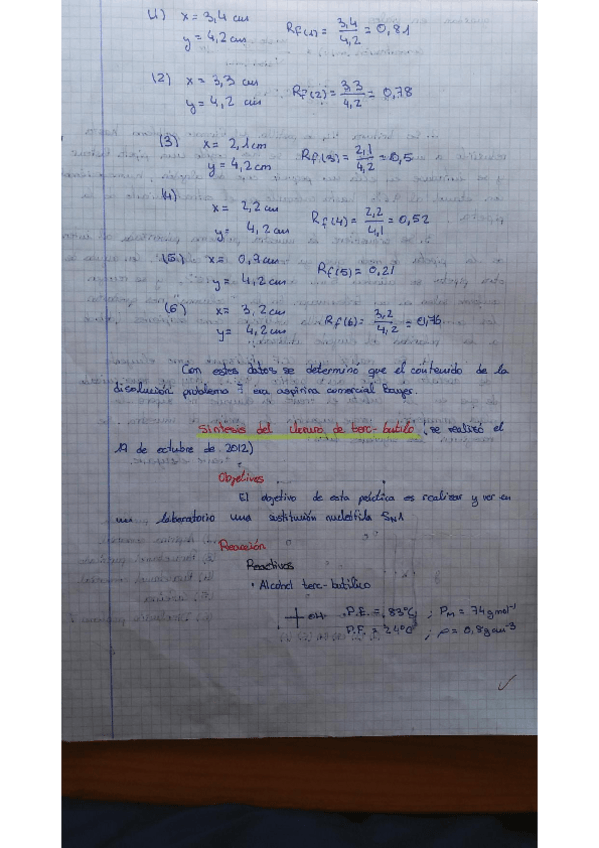 (1) x = 3,4 cm
y = 4,2 cm
Rf(1) = 3,4/4,2 = 0,81
(2) x = 3,3 cm
y = 4,2 cm
Rf(2) = 3,3/4,2 = 0,78
(3) x = 2,1 cm
y = 4,2 cm
Rf(3) = 2,1/4,2 = 0,5
(4)
x = 2,2 cm
y = 4,2 cm
Rf(4) = 2,2/4,1 = 0,52
(5) x = 0,7 cm
y = 4,2 cm
Rf(5) = 0,21
(6) x = 3,2 cm
y = 4,2 cm
Rf(6) = 3,2/4,2 = 0,76
Con estos datos se determino que el contenido de la
disolución problema 7 era aspirina comercial Bayer.
Síntesis del cloruro de terc-butilo, se realizó el
19 de octubre de 2012)
Objetivos
El objetivo de esta práctica es realizar y ver en
un laboratorio una sustitución nucleófila SN1
Reacción
Reactivos
• Alcohol terc-butílico
OH P.E. = 83ºC ; PM = 74 g mol⁻¹
P.F. = 24ºC ; ρ = 0,8 g cm⁻³